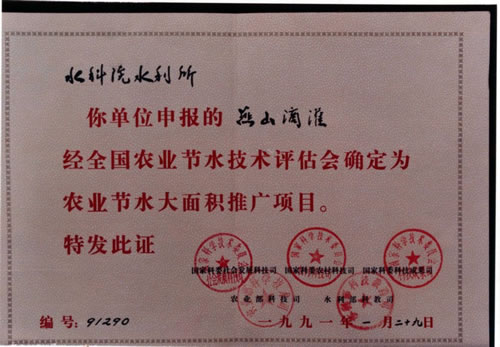 水科院水利所
你单位申报的 燕山滴灌
经全国农业节水技术评估会确定为
农业节水大面积推广项目。
特发此证
国家科委社会发展科技司 国家科委农村科技司 国家科委科技成果司
农业部科技司 水利部科教司
编号:91290 一九九一年一月二十九日